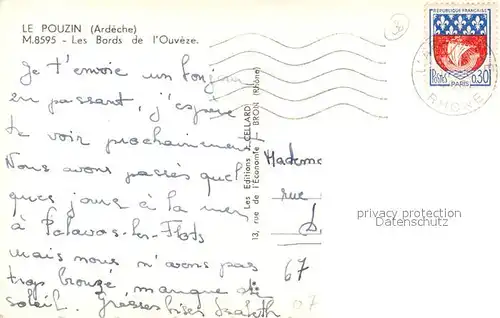 LE POUZIN (Ardèche)
M.8595 - Les Bords de l'Ouvèze.
Je t'envoie un bonjour
en passant, j'espère
te voir prochainement
Nous avons passés quel
ques jours à la mer
à Palavas-les-Flots
mais nous n'avons pas
trop bronzé, manque de
soleil. Grosses bises
Les Editions J. CELLARD
13, rue de l'Economie - BRON (Rhône)
REPUBLIQUE FRANÇAISE
POSTES
0,30
PARIS
RHONE
Madame
rue
67
07
privacy protection
Datenschutz